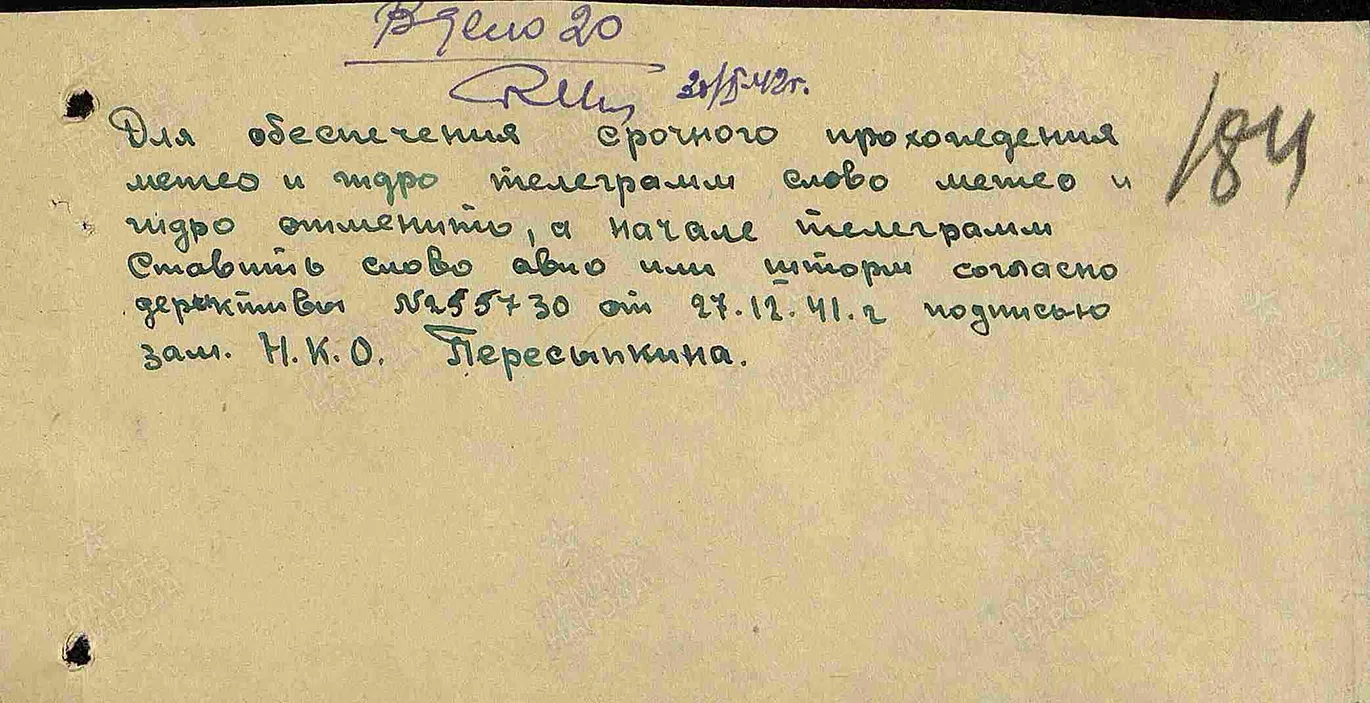 В дело 20
42г.
184
Для обеспечения срочного прохождения
метео и гидро телеграмм слово метео и
гидро отменить, а начале телеграмм
Ставить слово авио или шторм согласно
дерективы №255730 от 27.12.41.г подписью
зам. Н.К.О. Пересыпкина.
ПАМЯТЬ НАРОДА